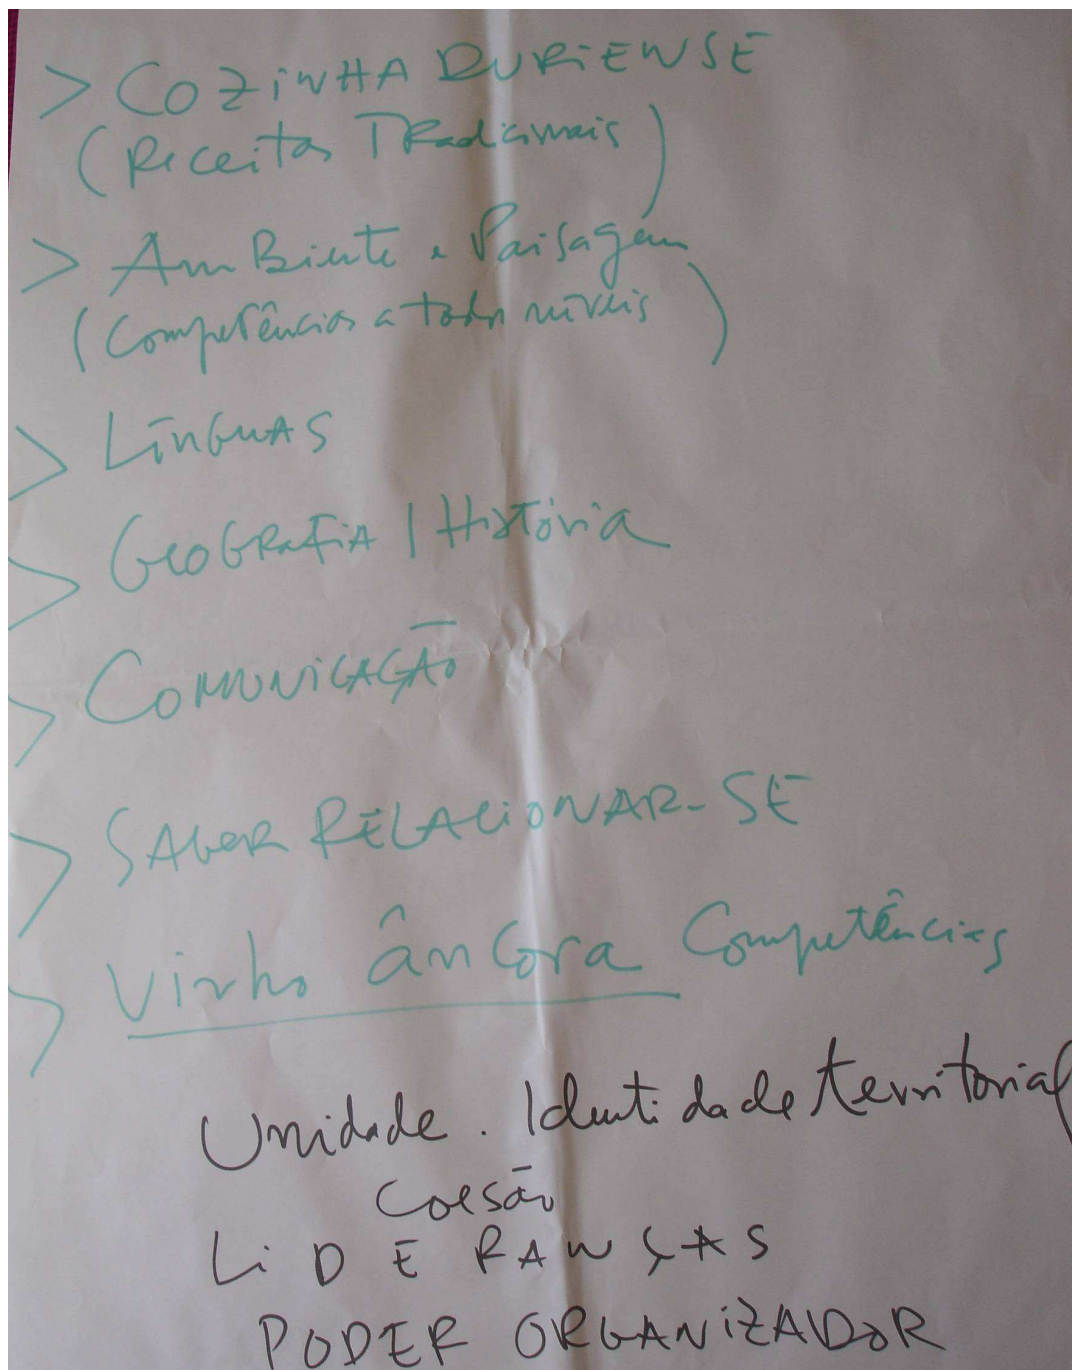 > COZINHA DURIENSE
(Receitas Tradicionais)
> Ambiente e Paisagem
(Competências a todos níveis)
> Línguas
> Geografia / História
> Comunicação
> SABER RELACIONAR-SE
> Vinho âncora Competências
Unidade. Identidade territorial
Coesão
LiDERANÇAS
PODER ORGANiZADOR